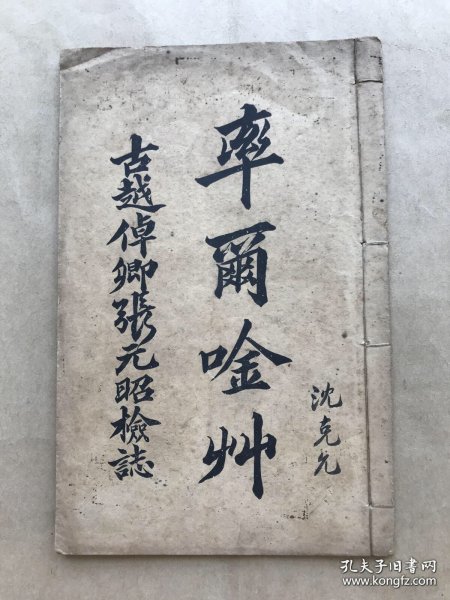 率爾唫艸
古越倬卿張元昭檢誌
沈克允
孔夫子旧书网
www.kongfz.com